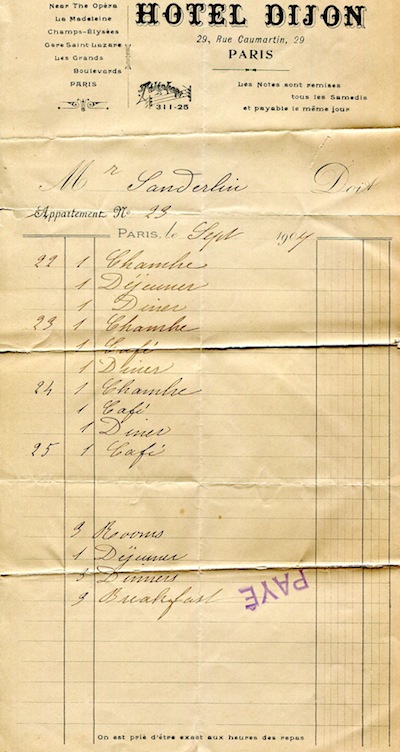 Near The Opéra
La Madeleine
Champs-Élysées
Gare Saint Lazare
Les Grands
Boulevards
PARIS
HOTEL DIJON
29, Rue Caumartin, 29
PARIS
Téléphone
311-25
Les Notes sont remises
tous les Samedis
et payable le même jour
Mr Sanderlin Doit
Appartement No 23
PARIS, le Sept 1904
22 1 Chambre
1 Déjeuner
1 Diner
23 1 Chambre
1 Café
1 Diner
24 1 Chambre
1 Café
1 Diner
25 1 Café
3 Rooms
1 Déjeuner
3 Dinners
3 Breakfast
PAYÉ
On est prié d'être exact aux heures des repas